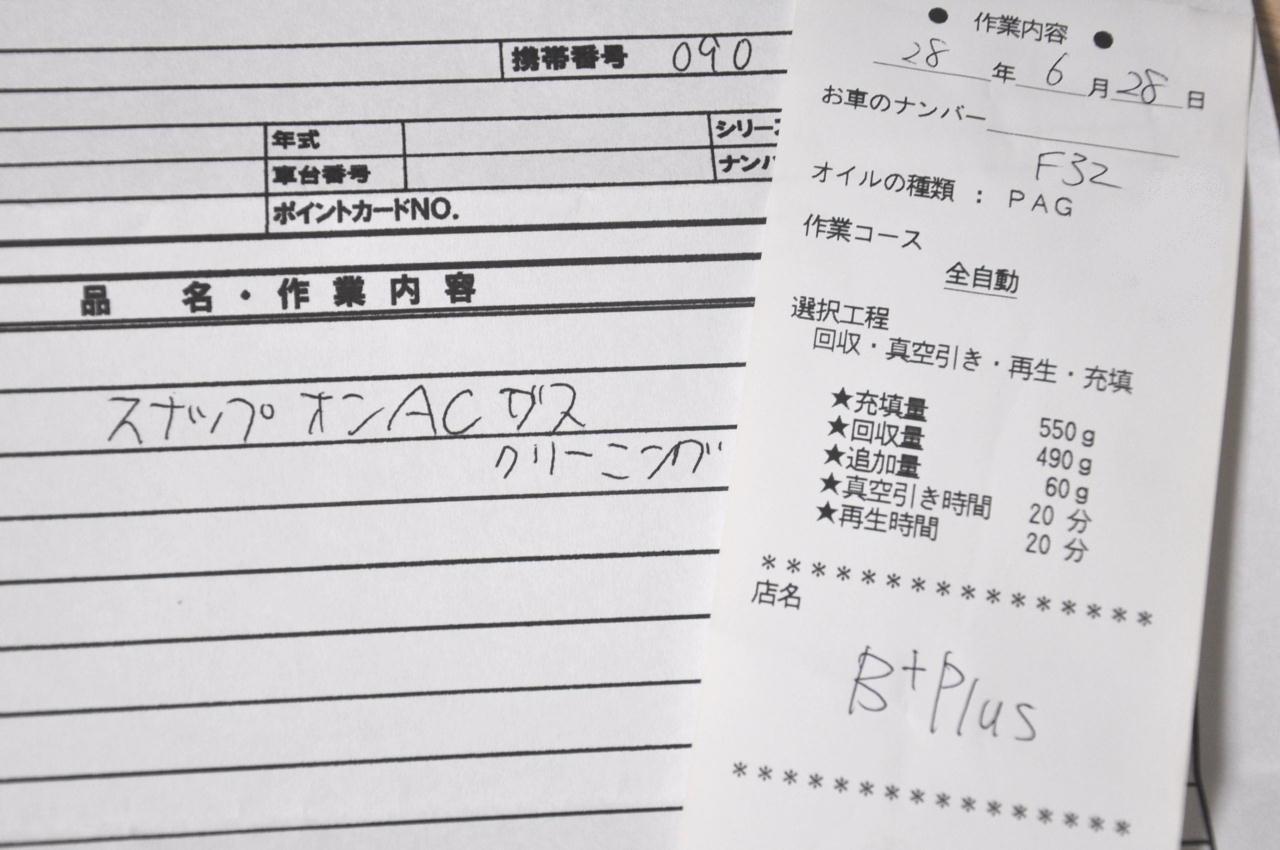 携帯番号 090
年式
シリー
車台番号
ナンバ
ポイントカードNO.
品 名・作 業 内 容
スナップオンACガス
クリーニング
● 作業内容 ●
28 年 6 月 28 日
お車のナンバー
F32
オイルの種類 : PAG
作業コース
全自動
選択工程
回収・真空引き・再生・充填
★充填量 550g
★回収量 490g
★追加量 60g
★真空引き時間 20 分
★再生時間 20 分
****************
店名
B+Plus
****************